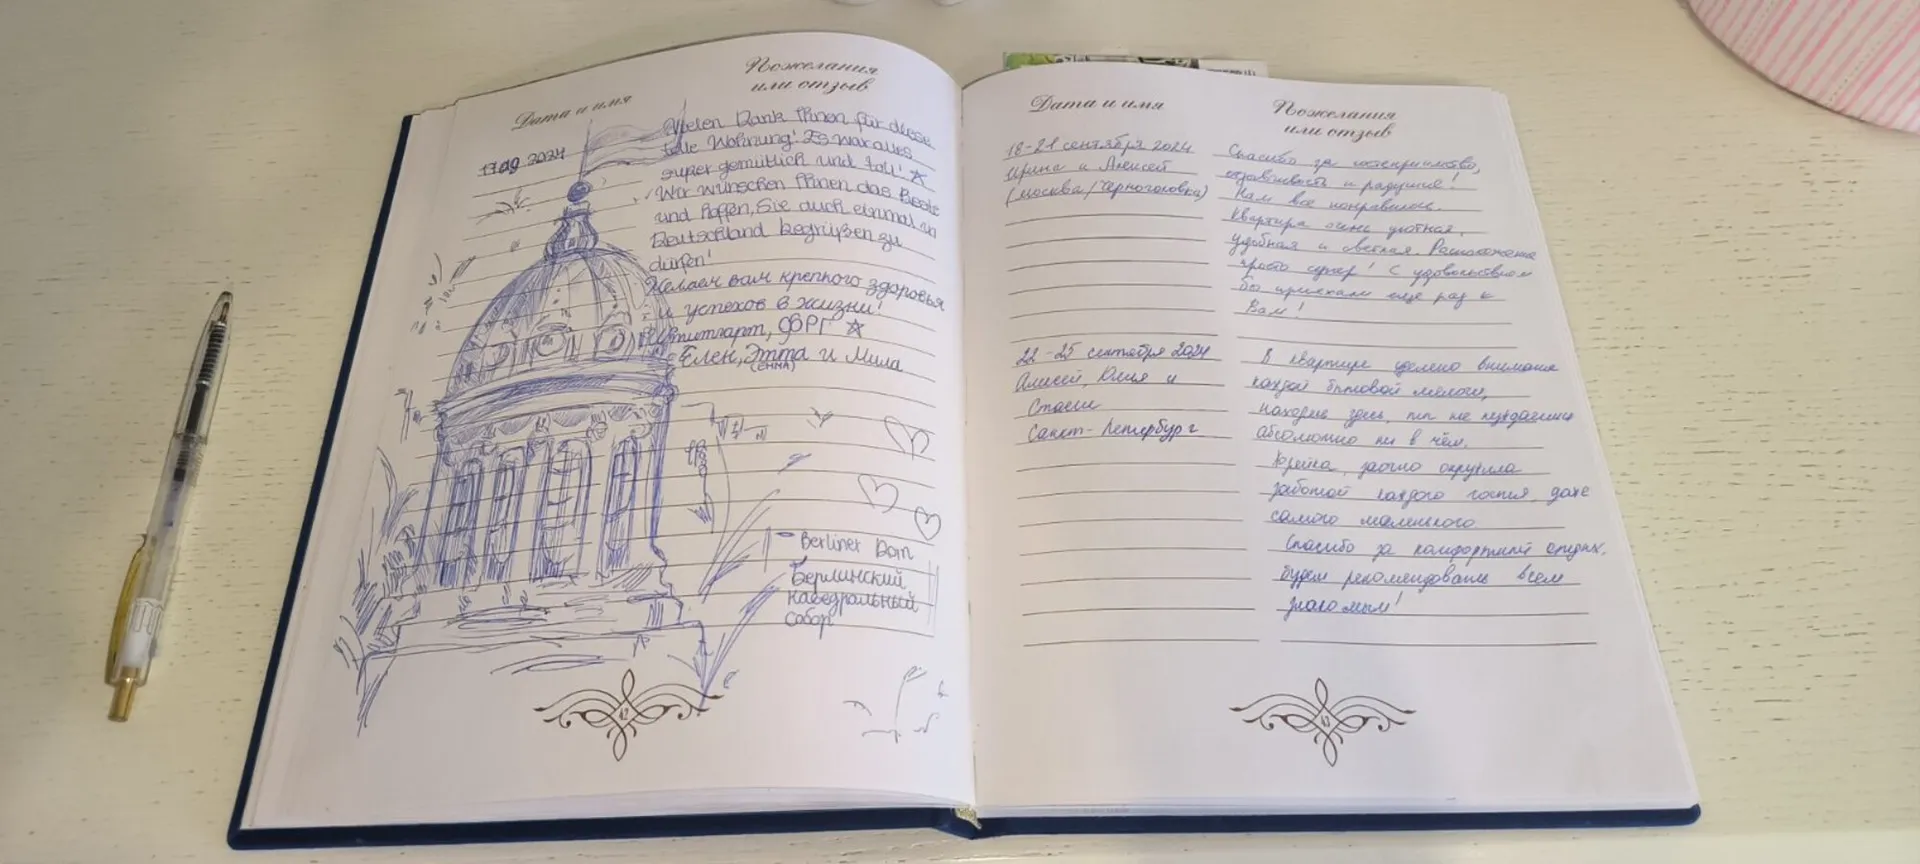 Дата и имя
Пожелания
или отзыв
17.09.2024
Vielen Dank Ihnen für diese
tolle Wohnung! Es war alles
super gemütlich und toll! ☆
Wir wünschen Ihnen das Beste
und hoffen, Sie auch einmal in
Deutschland begrüßen zu
dürfen!
Желаем вам крепкого здоровья
и успехов в жизни!
Штутгарт, ФРГ ☆
Елен, Эмма и Мила
(EMMA)
Berliner Dom
Берлинский
кафедральный
собор
42
Дата и имя
Пожелания
или отзыв
18-21 сентября 2024
Ирина и Алексей
(Москва/Черноголовка)
Спасибо за гостеприимство,
отзывчивость и радушие!
Нам все понравилось.
Квартира очень уютная,
удобная и светлая. Расположение
просто супер! С удовольствием
бы приехали еще раз к
Вам!
22-25 сентября 2024
Алисей, Юлия и
Стасик
Санкт-Петербург
В квартире уделено внимание
каждой бытовой мелочи,
находясь здесь, мы не нуждались
абсолютно ни в чём.
Хозяйка заочно окружила
заботой каждого гостя, даже
самого маленького.
Спасибо за комфортный отдых.
Будем рекомендовать всем
знакомым!
43